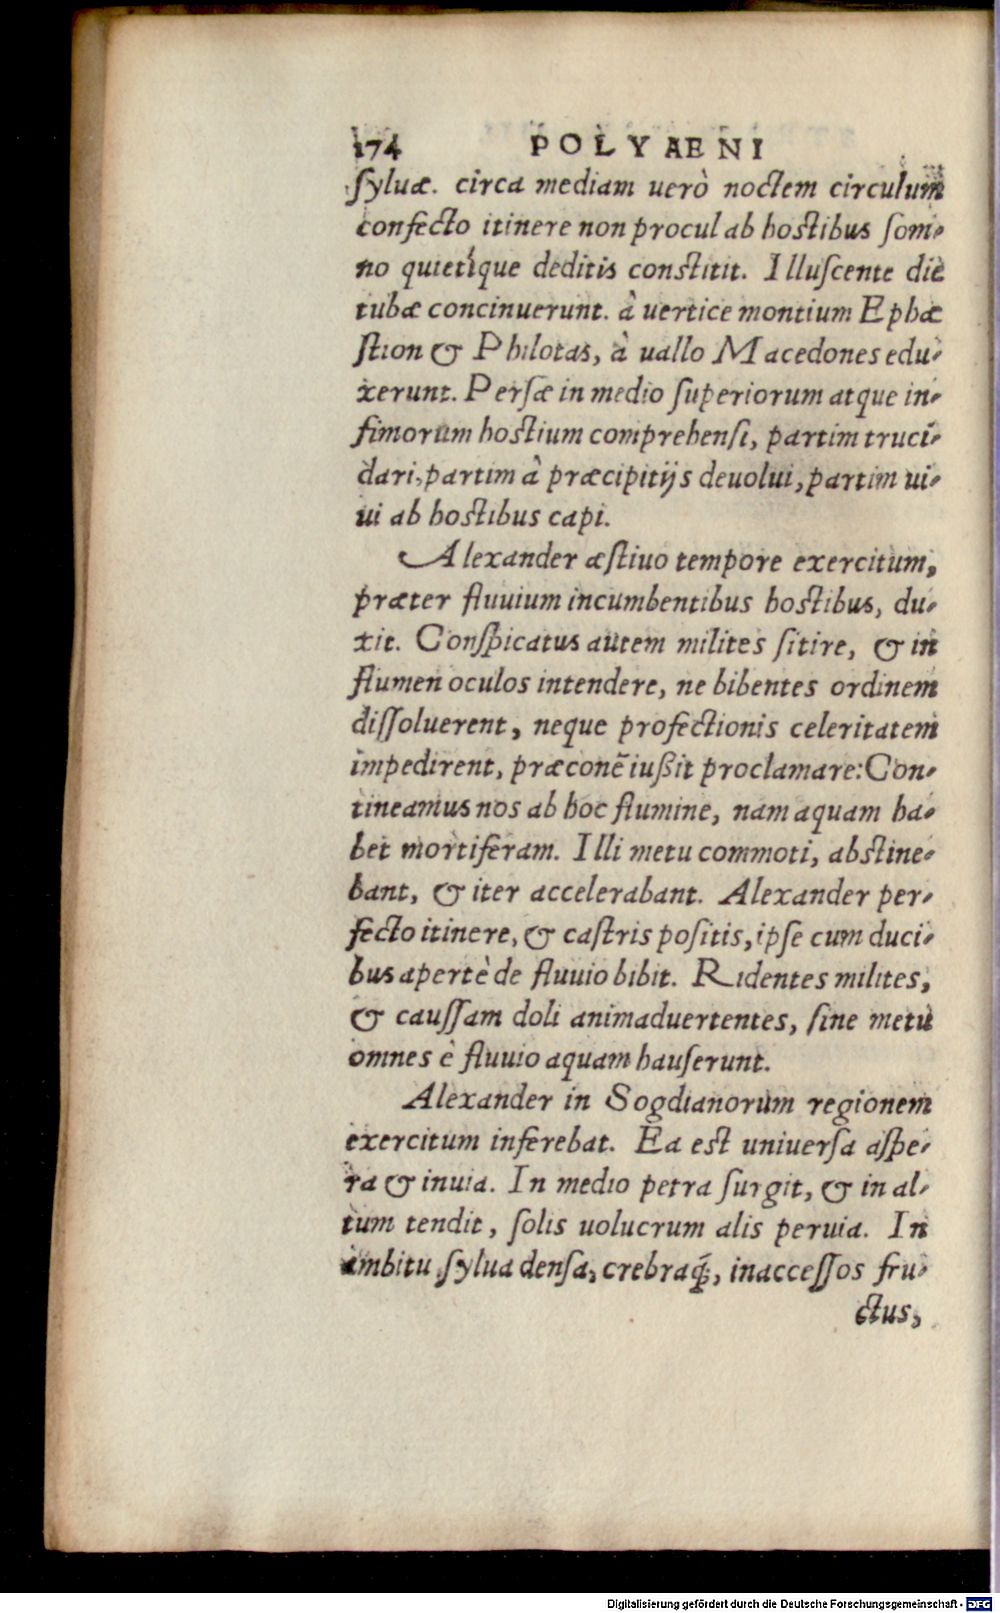 174 POLYAENI
ſyluæ. circa mediam uerò noctem circulum
confecto itinere non procul ab hoſtibus ſom-
no quietiq́ue deditis conſtitit. Illuſcente die
tubæ concinuerunt. à uertice montium Ephæ
ſtion & Philotas, à uallo Macedones edu-
xerunt. Perſæ in medio ſuperiorum atque in-
fimorum hoſtium comprehenſi, partim truci-
dari, partim à præcipitijs deuolui, partim ui-
ui ab hoſtibus capi.
Alexander æſtiuo tempore exercitum,
præter fluuium incumbentibus hoſtibus, du-
xit. Conſpicatus autem milites ſitire, & in
flumen oculos intendere, ne bibentes ordinem
diſſoluerent, neque profectionis celeritatem
impedirent, præconē iußit proclamare: Con-
tineamus nos ab hoc flumine, nam aquam ha-
bet mortiferam. Illi metu commoti, abſtine-
bant, & iter accelerabant. Alexander per-
fecto itinere, & caſtris poſitis, ipſe cum duci-
bus apertè de fluuio bibit. Ridentes milites,
& cauſſam doli animaduertentes, ſine metu
omnes è fluuio aquam hauſerunt.
Alexander in Sogdianorum regionem
exercitum inferebat. Ea eſt uniuerſa aſpe-
ra & inuia. In medio petra ſurgit, & in al-
tum tendit, ſolis uolucrum alis peruia. In
ambitu ſylua denſa, crebraq́;, inacceſſos fru-
ctus,
Digitalisierung gefördert durch die Deutsche Forschungsgemeinschaft - DFG